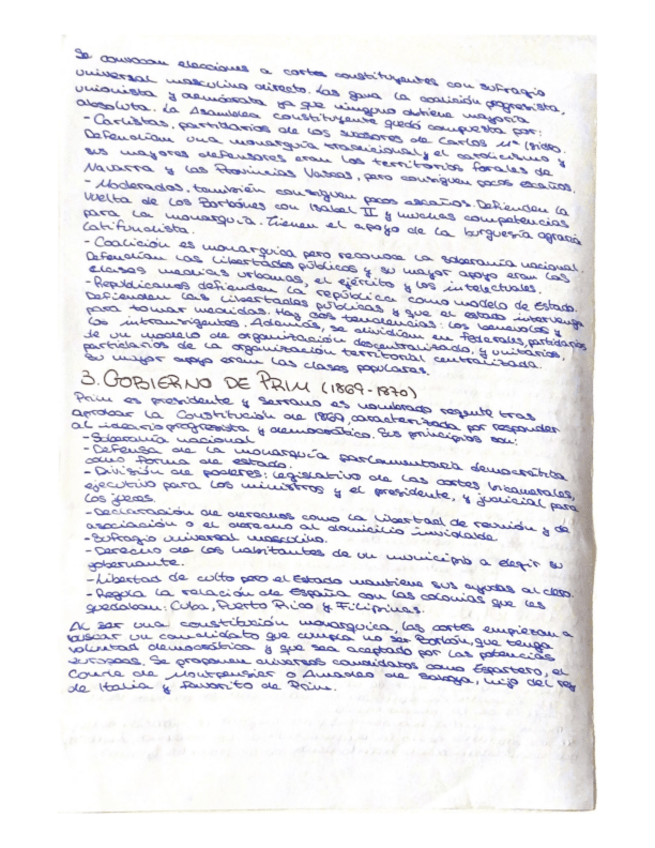 Se convocan elecciones a cortes constituyentes con sufragio
universal masculino directo. Las gana la coalición progresista,
unionista y demócrata ya que ninguno obtiene mayoría
absoluta. La Asamblea constituyente quedó compuesta por:
- Carlistas, partidarios de los sucesores de Carlos Mª Isidro.
Defendían una monarquía tradicional y el catolicismo y
sus mayores defensores eran los territorios forales de
Navarra y las Provincias Vascas, pero consiguen pocos escaños.
- Moderados, también consiguen pocos escaños. Defienden la
vuelta de los Borbones con Isabel II y muchas competencias
para la monarquía. Tienen el apoyo de la burguesía agraria
latifundista.
- Coalición es monarquica pero reconoce la soberanía nacional.
Defendían las libertades públicas y su mayor apoyo eran las
clases medias urbanas, el ejército y los intelectuales.
- Republicanos defienden la república como modelo de Estado.
Defienden las libertades públicas y que el estado intervenga
para tomar medidas. Hay dos tendencias: los benevolos y
los intransigentes. Además, se dividían en Federales, partidarios
de un modelo de organización descentralizado, y unitarios,
partidarios de la organización territorial centralizada.
Su mayor apoyo eran las clases populares.
3. GOBIERNO DE PRIM (1869-1870)
Prim es presidente y Serrano es nombrado regente tras
aprobar la Constitución de 1869, caracterizada por responder
al ideario progresista y democrático. Sus principios son:
- Soberanía nacional
- Defensa de la monarquía parlamentaria democrática
como forma de estado.
- División de poderes: legislativo de las cortes bicamerales,
ejecutivo para los ministros y el presidente, y judicial para
los jueces.
- Declaración de derechos como la libertad de reunión y de
asociación o el derecho al domicilio inviolable.
- Sufragio universal masculino.
- Derecho de los habitantes de un municipio a elegir su
gobernante.
- Libertad de culto pero el Estado mantiene sus ayudas al clero.
- Regula la relación de España con las colonias que les
quedaban: Cuba, Puerto Rico y Filipinas.
Al ser una constitución monarquica, las cortes empiezan a
buscar un candidato que cumpla no ser Borbón, que tenga
voluntad democrática y que sea aceptado por las potencias
europeas. Se proponen diversos candidatos como Espartero, el
Conde de Montpensier o Amadeo de Saboya, hijo del rey
de Italia y favorito de Prim.